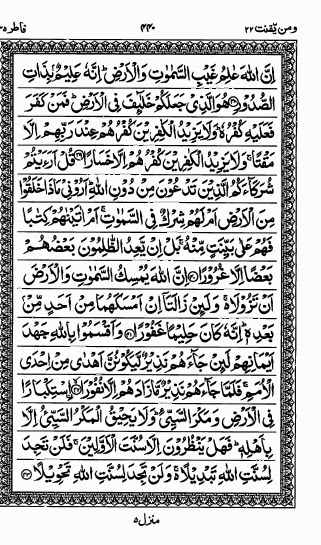 ومن يقنت ٢٢ ٤٤٠ فاطر ٣٥
اِنَّ اللّٰهَ عٰلِمُ غَيْبِ السَّمٰوٰتِ وَالْاَرْضِ ؕ اِنَّهٗ عَلِيْمٌۢ بِذَاتِ
الصُّدُوْرِ ﴿۳۸﴾ هُوَ الَّذِيْ جَعَلَكُمْ خَلٰٓئِفَ فِي الْاَرْضِ ؕ فَمَنْ كَفَرَ
فَعَلَيْهِ كُفْرُهٗ ؕ وَلَا يَزِيْدُ الْكٰفِرِيْنَ كُفْرُهُمْ عِنْدَ رَبِّهِمْ اِلَّا
مَقْتًا ۚ وَلَا يَزِيْدُ الْكٰفِرِيْنَ كُفْرُهُمْ اِلَّا خَسَارًا ﴿۳۹﴾ قُلْ اَرَءَيْتُمْ
شُرَكَآءَكُمُ الَّذِيْنَ تَدْعُوْنَ مِنْ دُوْنِ اللّٰهِ ؕ اَرُوْنِيْ مَاذَا خَلَقُوْا
مِنَ الْاَرْضِ اَمْ لَهُمْ شِرْكٌ فِي السَّمٰوٰتِ ۚ اَمْ اٰتَيْنٰهُمْ كِتٰبًا
فَهُمْ عَلٰى بَيِّنَتٍ مِّنْهُ ۚ بَلْ اِنْ يَّعِدُ الظّٰلِمُوْنَ بَعْضُهُمْ
بَعْضًا اِلَّا غُرُوْرًا ﴿۴۰﴾ اِنَّ اللّٰهَ يُمْسِكُ السَّمٰوٰتِ وَالْاَرْضَ
اَنْ تَزُوْلَا ۚ وَلَئِنْ زَالَتَاۤ اِنْ اَمْسَكَهُمَا مِنْ اَحَدٍ مِّنْۢ
بَعْدِهٖ ؕ اِنَّهٗ كَانَ حَلِيْمًا غَفُوْرًا ﴿۴۱﴾ وَاَقْسَمُوْا بِاللّٰهِ جَهْدَ
اَيْمَانِهِمْ لَئِنْ جَآءَهُمْ نَذِيْرٌ لَّيَكُوْنُنَّ اَهْدٰى مِنْ اِحْدَى
الْاُمَمِ ۚ فَلَمَّا جَآءَهُمْ نَذِيْرٌ مَّا زَادَهُمْ اِلَّا نُفُوْرًا ﴿۴۲﴾ اسْتِكْبَارًا
فِي الْاَرْضِ وَمَكْرَ السَّيِّئِ ؕ وَلَا يَحِيْقُ الْمَكْرُ السَّيِّئُ اِلَّا
بِاَهْلِهٖ ؕ فَهَلْ يَنْظُرُوْنَ اِلَّا سُنَّتَ الْاَوَّلِيْنَ ۚ فَلَنْ تَجِدَ
لِسُنَّتِ اللّٰهِ تَبْدِيْلًا ۚ وَلَنْ تَجِدَ لِسُنَّتِ اللّٰهِ تَحْوِيْلًا ﴿۴۳﴾
منزل ٥